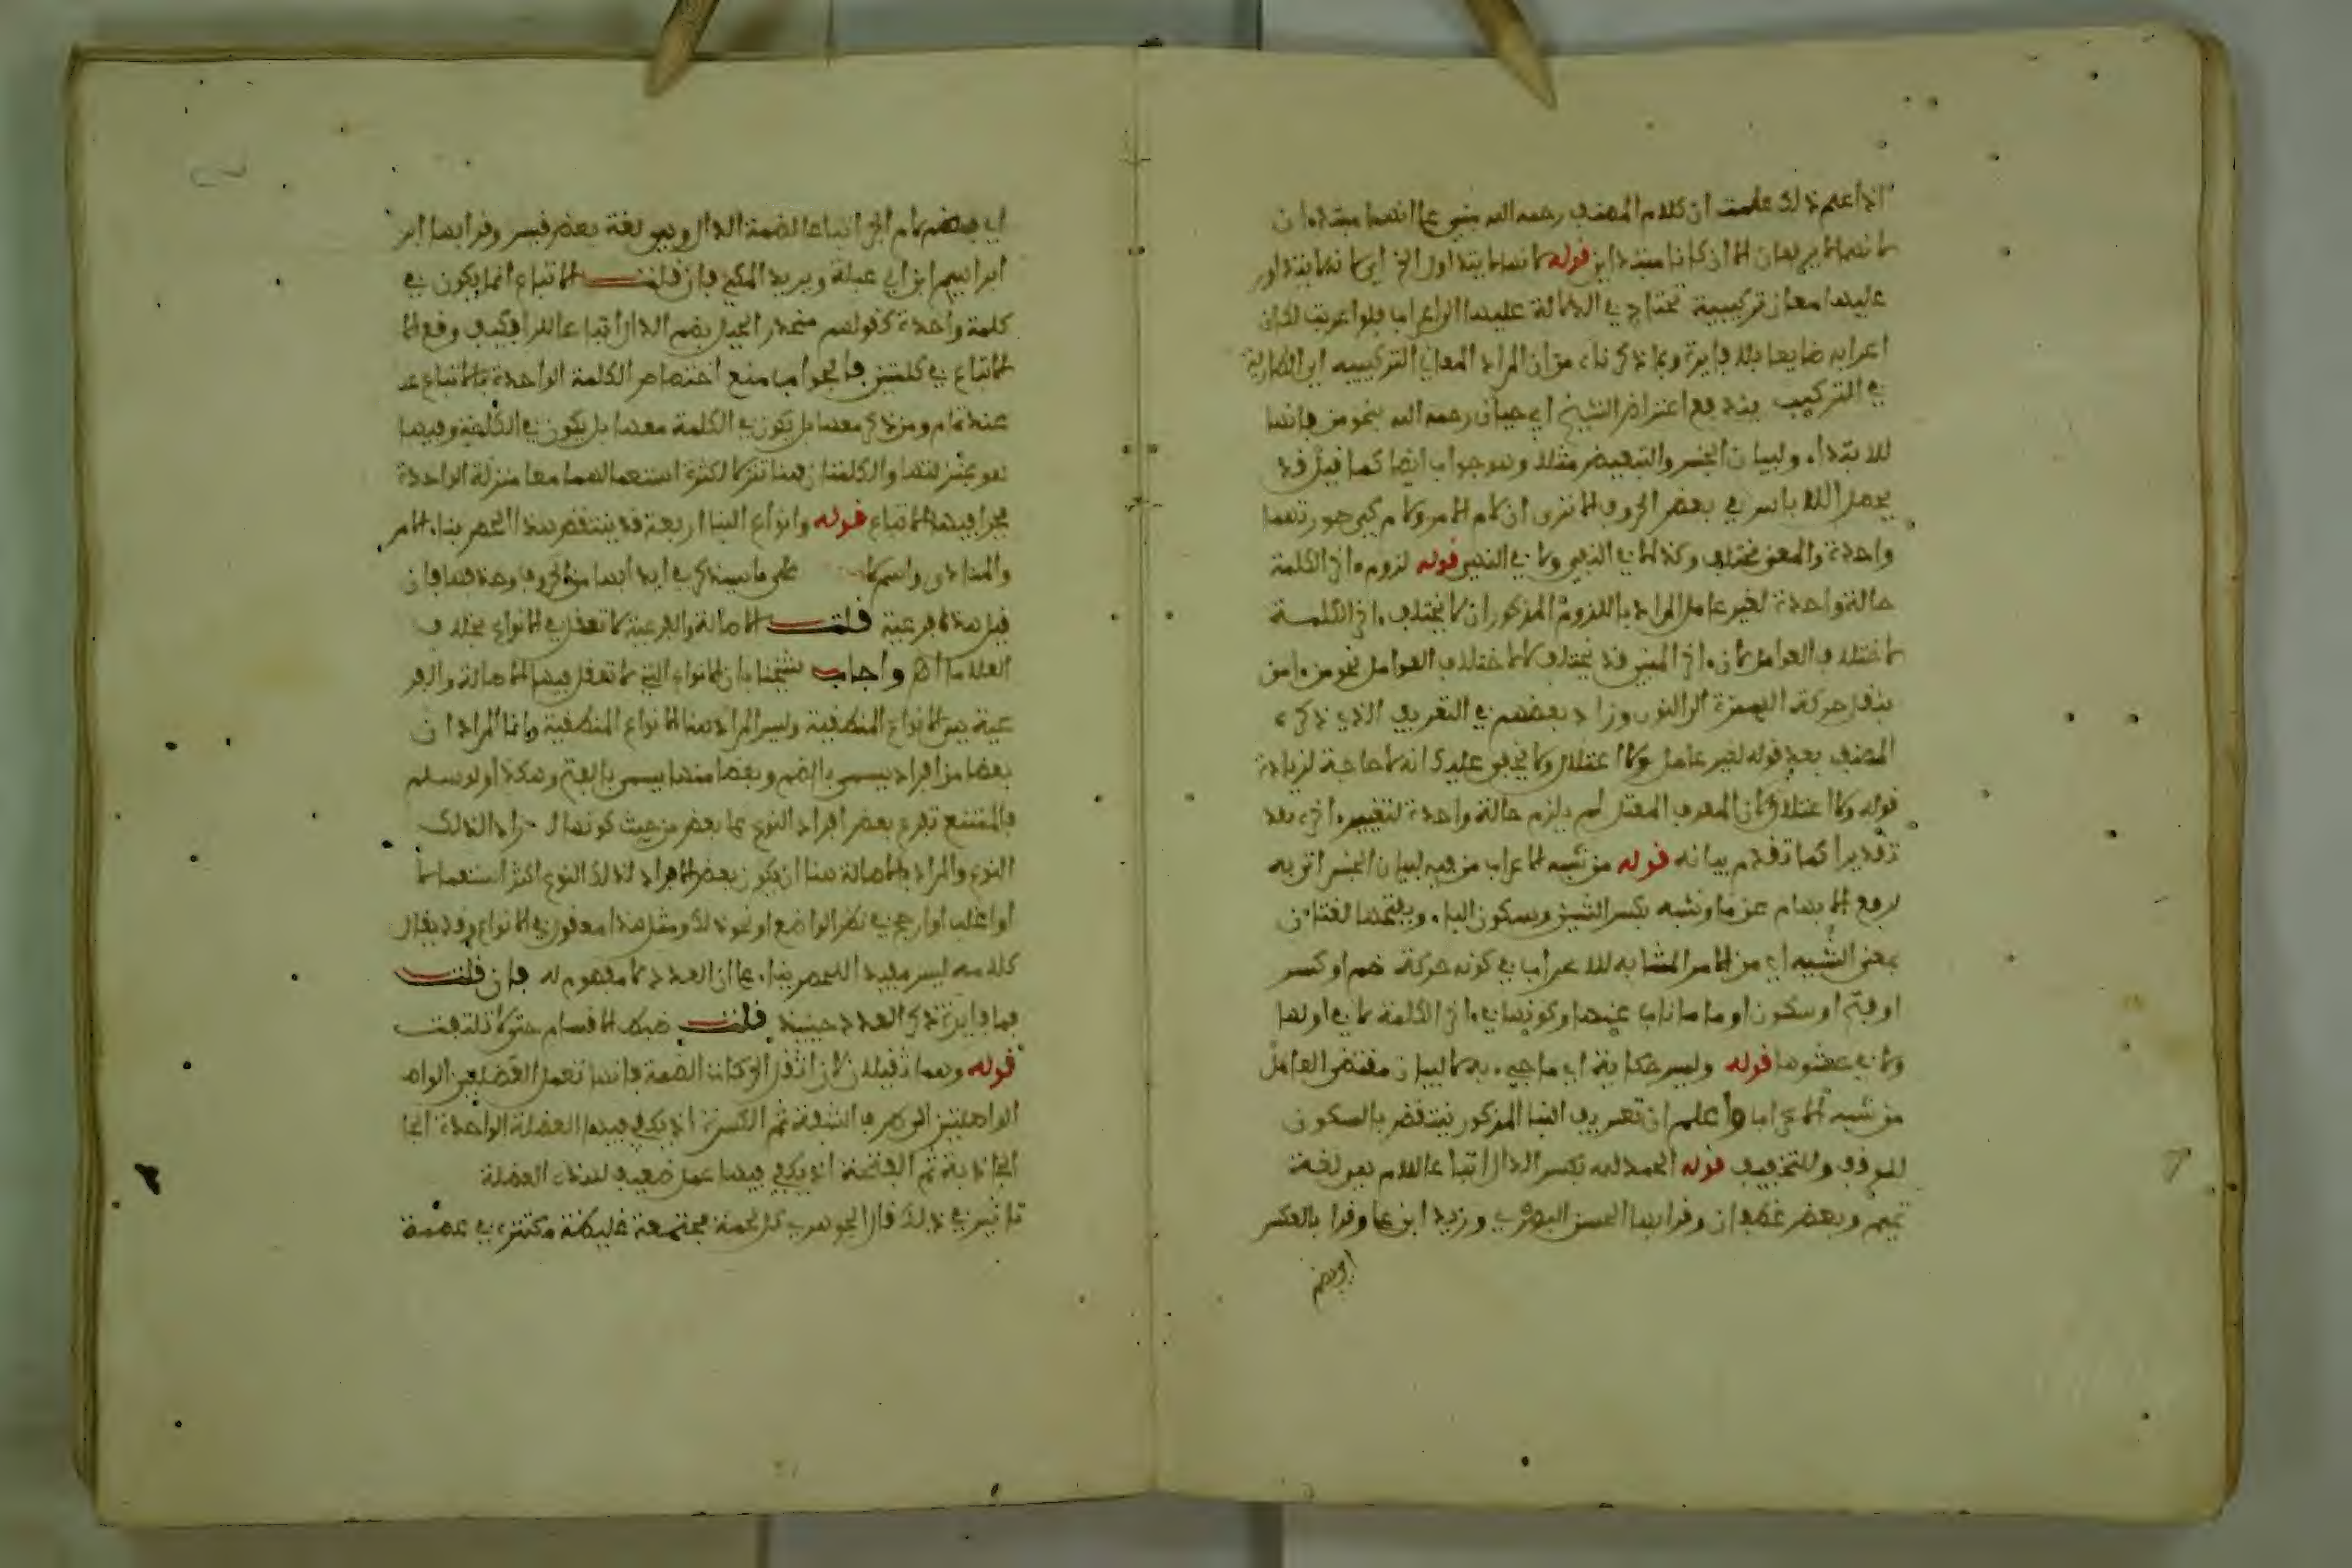 اذا علم ذلك علمت ان كلام المصنف رحمه الله مبني على انهما مبتدءان
لانهما لا يرفعان الا ان كانا مبتداين قوله لانها لا يتداول الخ اي لانها يتداور
عليها معان تركيبية تحتاج في الدلالة عليها الى اعراب فلو اعربت لكان
اعرابه ضايعا بلا فايدة وبما ذكرناه من ان المراد المعاني التركيبيه اي الطارية
في التركيب يندفع اعتراض الشيخ ابي حيان رحمه الله بنحو من فانها
للابتداء ولبيان الجنس والتبعيض مثلا وهو جواب ايضا كما قيل قد
يحصل الالباس في بعض الحروف الا ترى ان لام الامر ولام كي صورتهما
واحدة والمعنى مختلف وكذا لا في النفي ولا في النهي قوله لزوم ءاخر الكلمة
حالة واحدة لغير عامل المراد باللزوم المذكور ان لا يختلف ءاخر الكلمة
لاختلاف العوامل لان ءاخر المبني قد يختلف لا لاختلاف العوامل نحو من ءامن
بنقل حركة الهمزة الى النون وزاد بعضهم في التعريف الذي ذكره
المصنف بعد قوله لغير عامل ولا اعتلال ولا يخفى عليك انه لا حاجة لزيادة
قوله ولا اعتلال لان المعرب المعتل لم يلزم حالة واحدة لتغيير ءاخره بعد
تقديرا كما تقدم بيانه قوله من شبه الاعراب من فيه لبيان الجنس اتى به
لرفع الابهام عن ما وشبه بكسر الشين وسكون الباء وبفتحها لغتان
بمعنى الشبيه اي من الامر المشابه للاعراب في كونه حركة ضم او كسر
او فتح او سكون او ما ناب عنها وكونها في ءاخر الكلمة لا في اولها
ولا في حشوها قوله وليس حكاية اي ما جيء به لا لبيان مقتضى العامل
من شبه الاعراب واعلم ان تعريف البنا المذكور ينتقض بالسكون
للوقف وللتخفيف قوله الحمد لله بكسر الدال اتباعا للام هو لغة
تميم وبعض غطفان وقرا بها الحسن البصري وزيد ابن علي وقرا بالعكس
اي بضم
اي بضم لام الجر اتباعا لضمة الدال وهو لغة بعض قيس وقرا بها ابر
ابراهيم ابن ابي عبلة ويزيد المكي فان قلت الاتباع انما يكون في
كلمة واحدة كقولهم منحدر الجبل بضم الدال اتباعا للرا فكيف وقع الا
الاتباع في كلمتين فالجواب منع اختصاص الكلمة الواحدة بالاتباع عند
عندنا ومن ذكر معها بل يكون في الكلمة معها بل يكون في الكلمة وفيما
هو بمنزلتها والكلمتان هنا تنزلا لكثرة استعمالهما معا منزلة الواحدة
فجرا فيهما الاتباع قوله وانواع البنا اربعة قد ينتقض هذا الحصر ببناء الامر
والمنادى واسم لا على ما سيذكر في ابدابها من الحروف وحذفها فان
قيل هذه فرعية قلت الاصالة والفرعية لا تعقل في الانواع بخلاف
العلامات اهـ واجاب شيخنا بان الانواع التي لا تعقل فيها الاصالة والفر
عية هي الانواع المنطقية وليس المراد هنا الانواع المنطقية وانما المراد ان
بعضا من افراده يسمى بالضم وبعضا منها يسمى بالفتح وهكذا ولو سلم
فالممتنع تفرع بعض افراد النوع على بعض من حيث كونها افراد الذلك
النوع والمراد بالاصالة هنا ان يكون بعض الافراد لذلك النوع اكثر استعمالا
او اغلب او ارجح في نظر الواضع او نحو ذلك ومثل هذا معقول في الانواع وقد يقال
كلامه ليس مفيد الحصر بناء على ان العدد لا مفهوم له فان قلت
فما فايدة ذكر العدد حينيذ قلت ضبط الاقسام حتى لا تلتفت
قوله وهما ثقيلان لان اثقل الحركات الضمة فانها تعمل العضلتين الواص
الواصلتين الى طرف الشفة ثم الكسرة اذ يكفي فيها العضلة الواحدة الجا
الجاذبة ثم الفتحة اذ يكفي فيها عمل ضعيف لهذه العضلة
تانيس في ذلك قال الجوهري كل لحمة مجتمعة غليظة مكتنزة في عصبة